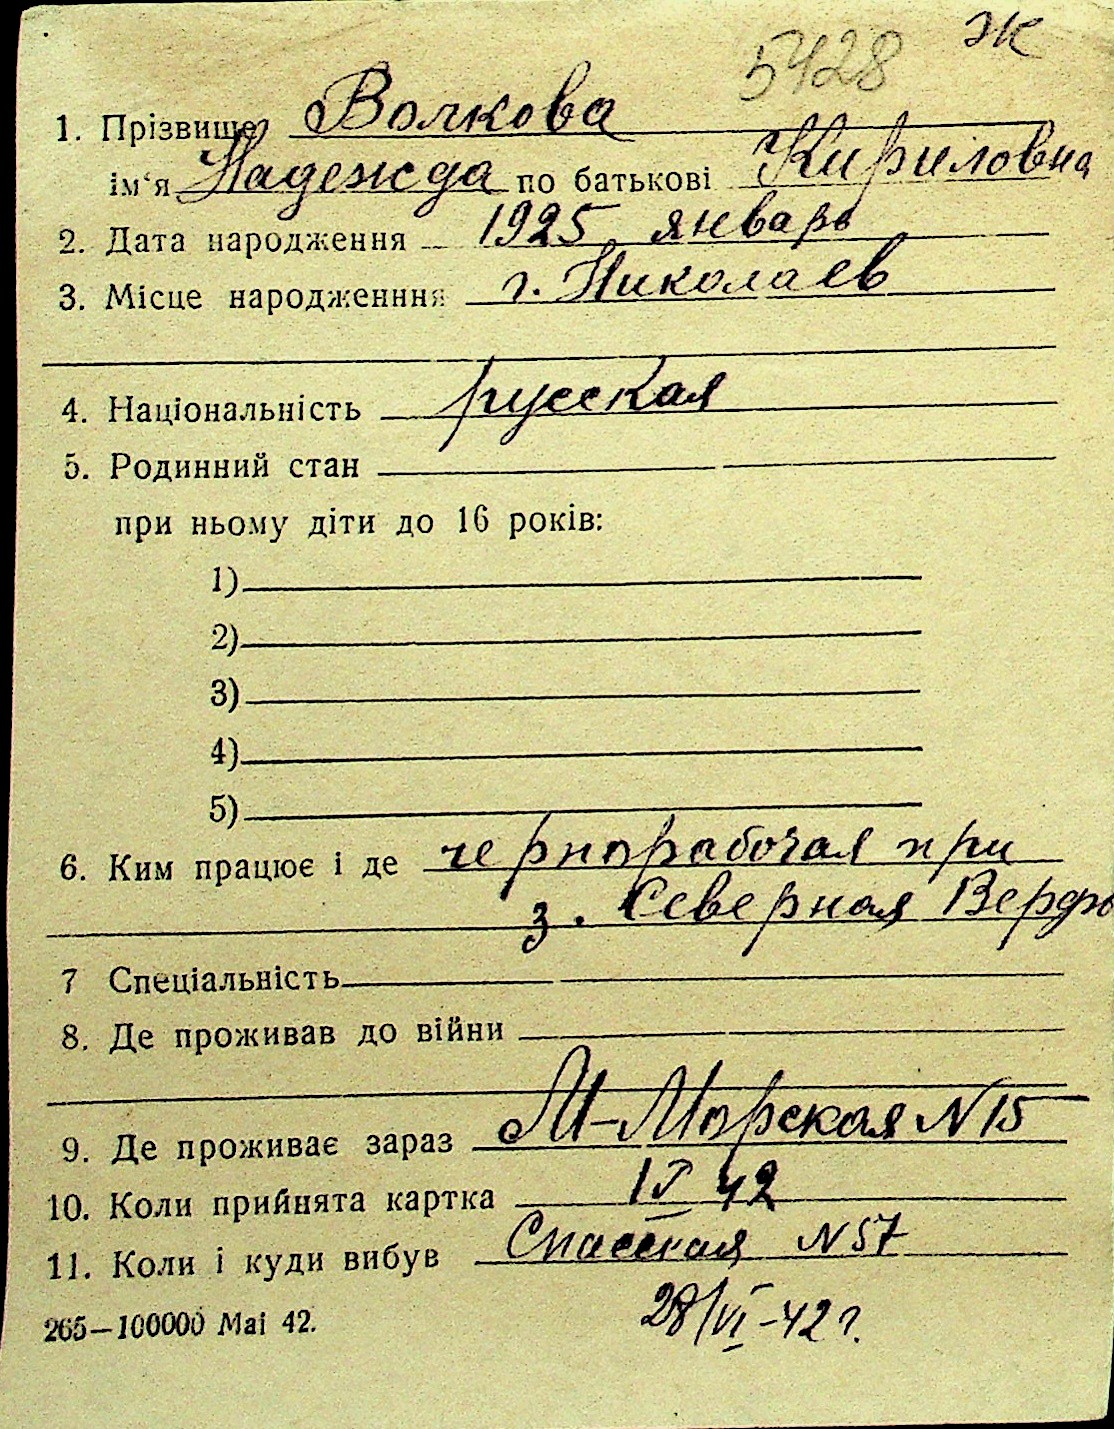 ж
5428
1. Прізвище Волкова
ім'я Надежда по батькові Кириловна
2. Дата народження 1925 январь
3. Місце народженння г. Николаев
4. Національність русская
5. Родинний стан
при ньому діти до 16 років:
1)
2)
3)
4)
5)
6. Ким працює і де чернорабочая при
з. Северная Верфь
7 Спеціальність
8. Де проживав до війни
9. Де проживає зараз М-Морская N 15
10. Коли прийнята картка 42
11. Коли і куди вибув Спасская N 57
28/VI-42 г.
265—100000 Маі 42.